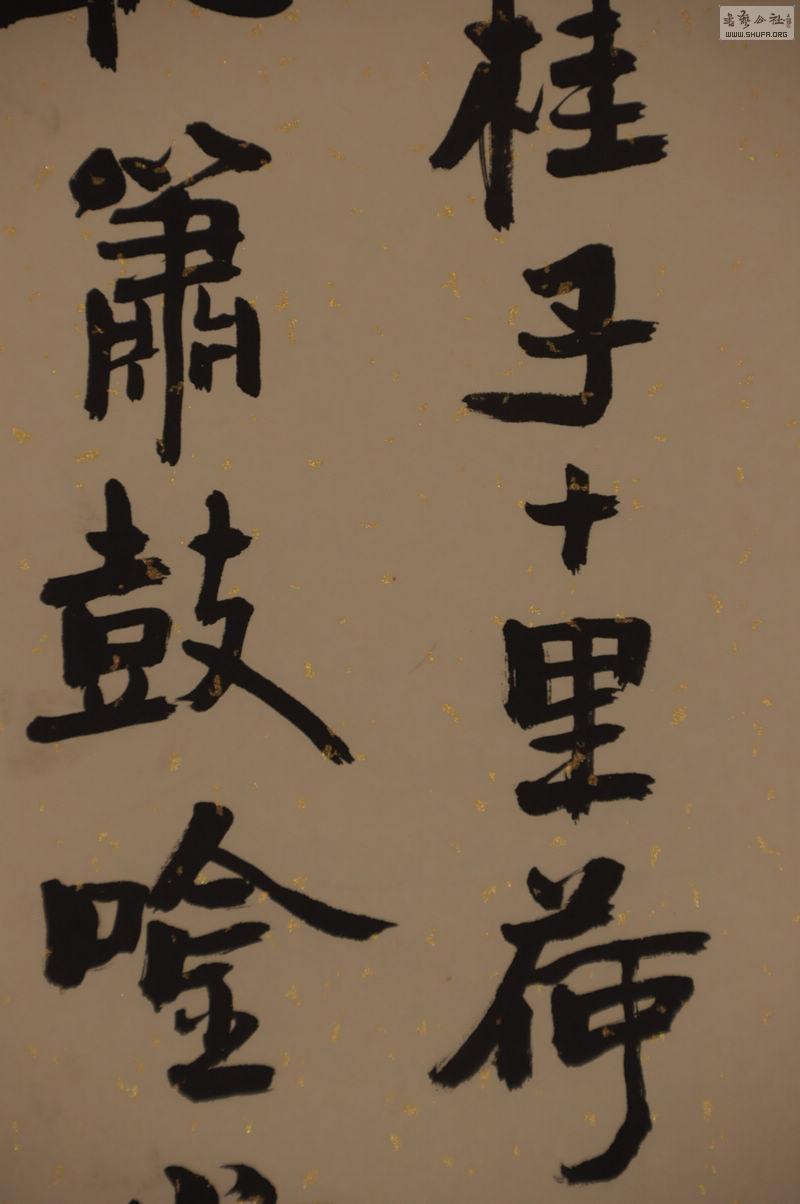 桂子十里荷
簫鼓唫
書藝公社
WWW.SHUFA.ORG